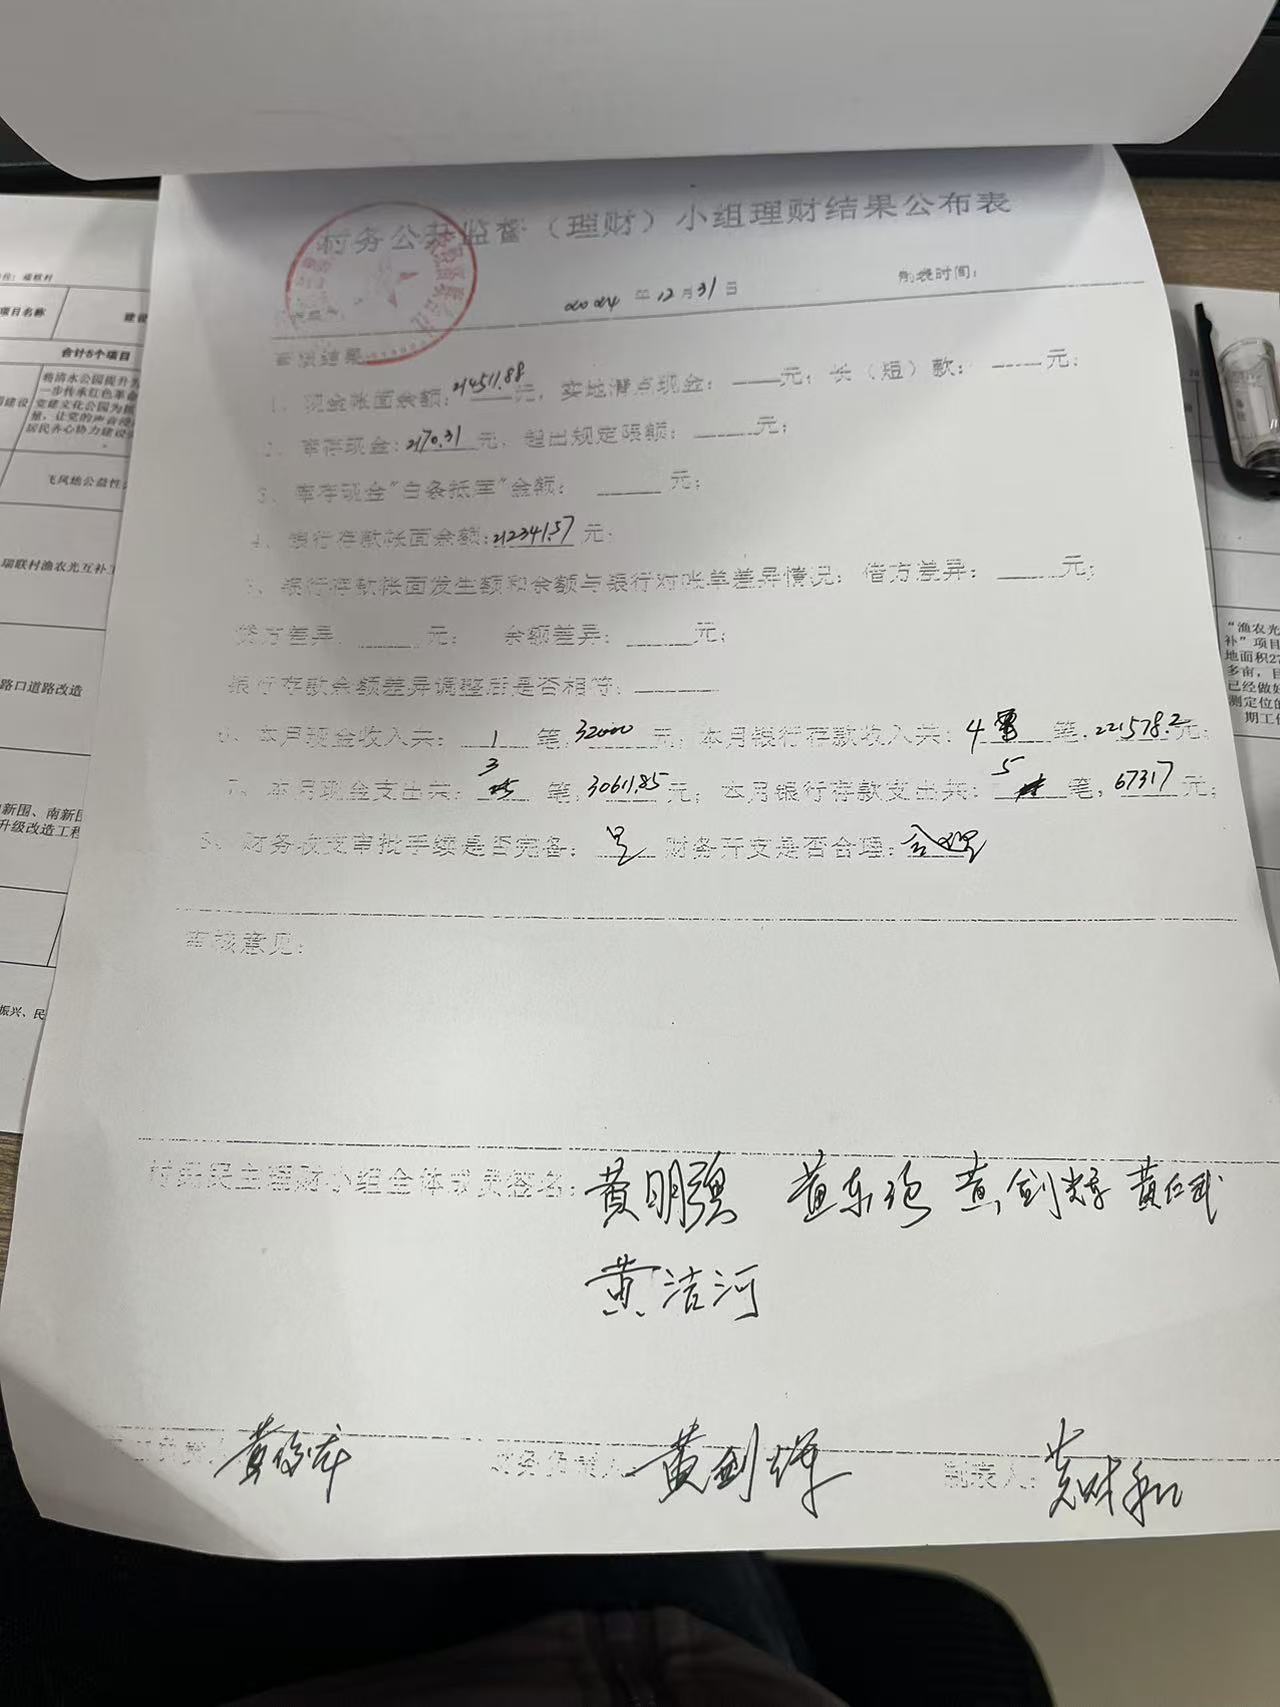 村务公开监督（理财）小组理财结果公布表
2024 年 12 月 31 日
制表时间：
审议结果
1、现金帐面余额：214511.88元，实地清点现金：元；长（短）款：元；
2、库存现金：2170.31元，超出规定限额：元；
3、库存现金"白条抵库"金额：元；
4、银行存款帐面余额：212341.57元；
5、银行存款帐面发生额和余额与银行对帐单差异情况：借方差异：元；
贷方差异 元； 余额差异：元；
银行存款余额差异调整后是否相符：
6、本月现金收入共：1 笔，32000 元，本月银行存款收入共：4 笔，221578.2元；
7、本月现金支出共：3 笔，30611.85元，本月银行存款支出共：5 笔，67317元；
8、财务收支审批手续是否完备：是 财务开支是否合理：合理
审核意见：
村级民主理财小组全体成员签名：黄明强 黄东 黄剑辉 黄仁武
黄洁河
黄俊 财务负责人 黄剑辉 制表人：黄财和
位：瑞联村
项目名称
建设
合计5个项目
建设
将清水公园提升为
一步传承红色革命
党建文化公园为抓
量，让党的声音浸
居民齐心协力建设
飞凤地公益性
瑞联村渔农光互补
路口道路改造
新围、南新围
升级改造工程
振兴、民
"渔农光
补"项目
地面积27
多亩，目
已经做好
测定位的
期工作